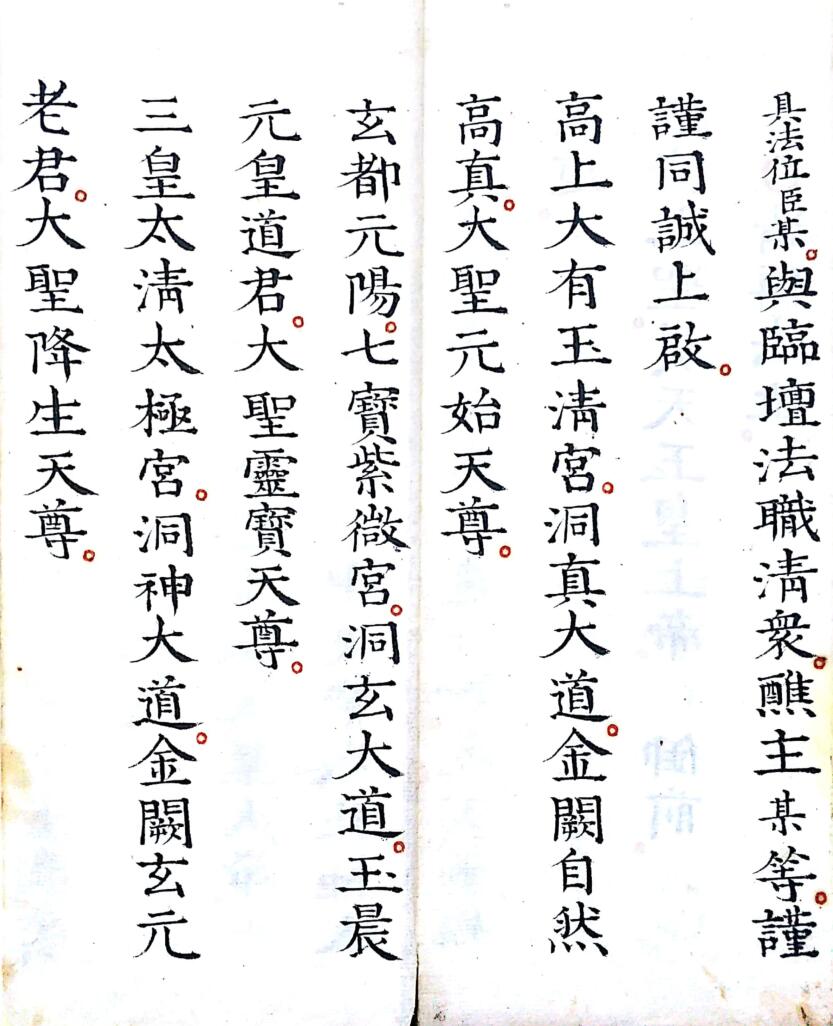 具法位臣某。與臨壇法職清衆。醮主某等。謹
謹同誠上啟。
高上大有玉清宮。洞真大道。金闕自然
高真。大聖元始天尊。
玄都元陽。七寶紫微宮。洞玄大道。玉晨
元皇道君。大聖靈寶天尊。
三皇太清太極宮。洞神大道。金闕玄元
老君。大聖降生天尊。